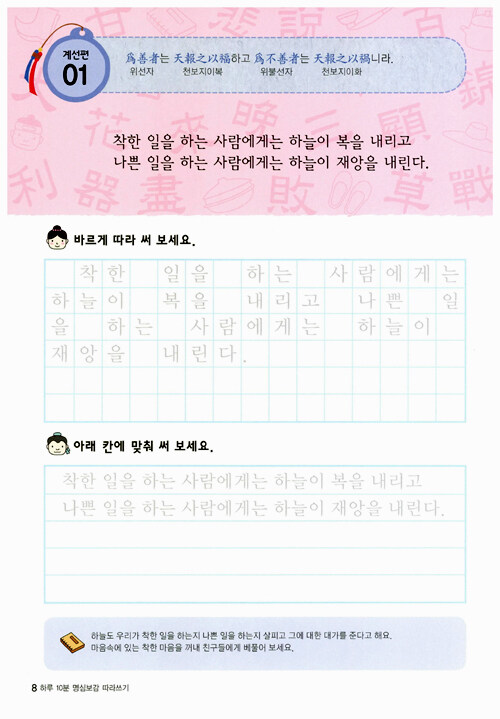 계선편
01
爲善者는 天報之以福하고 爲不善者는 天報之以禍니라.
위선자 천보지이복 위불선자 천보지이화
착한 일을 하는 사람에게는 하늘이 복을 내리고
나쁜 일을 하는 사람에게는 하늘이 재앙을 내린다.
바르게 따라 써 보세요.
착한 일을 하는 사람에게는
하늘이 복을 내리고 나쁜 일
을 하는 사람에게는 하늘이
재앙을 내린다.
아래 칸에 맞춰 써 보세요.
착한 일을 하는 사람에게는 하늘이 복을 내리고
나쁜 일을 하는 사람에게는 하늘이 재앙을 내린다.
하늘도 우리가 착한 일을 하는지 나쁜 일을 하는지 살피고 그에 대한 대가를 준다고 해요.
마음속에 있는 착한 마음을 꺼내 친구들에게 베풀어 보세요.
8 하루 10분 명심보감 따라쓰기